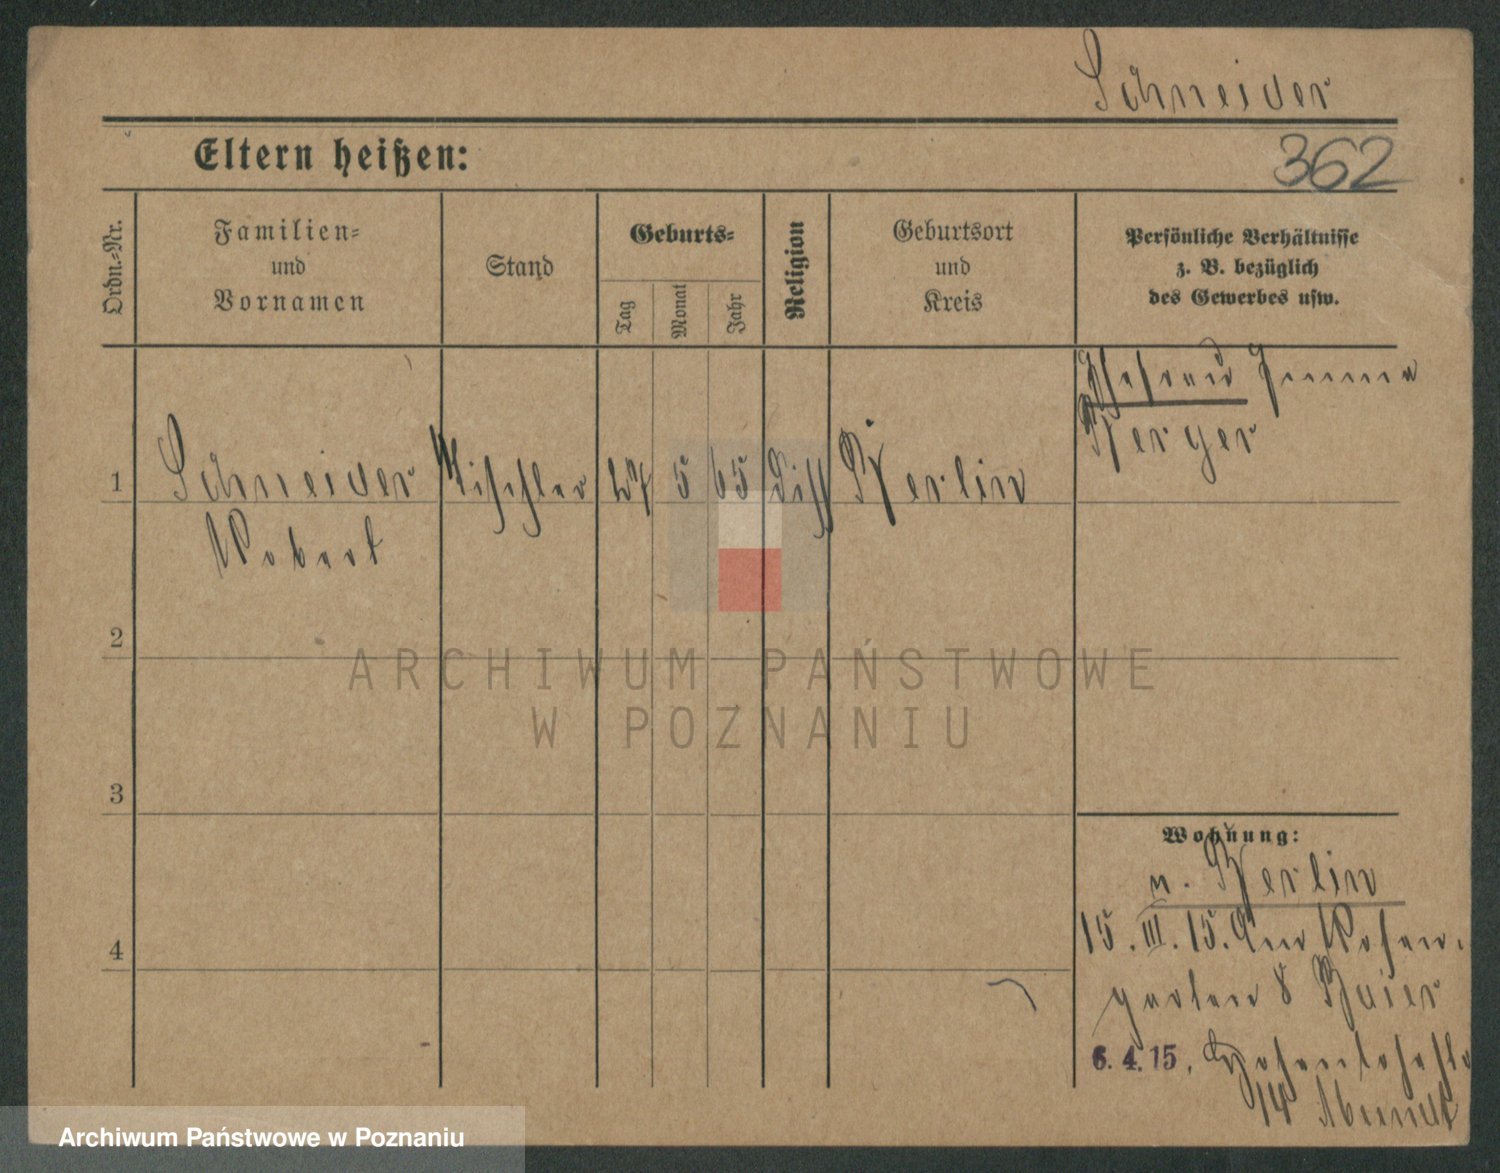 Schneider
Eltern heißen:
362
Ordn.-Nr.
Familien-
und
Vornamen
Stand
Geburts-
Tag
Monat
Jahr
Religion
Geburtsort
und
Kreis
Persönliche Verhältnisse
z. B. bezüglich
des Gewerbes usw.
Ehefrau Emma
Berger
1
Schneider
Robert
Tischler
27
5
65
Diss
Berlin
2
3
4
Wohnung:
v. Berlin
15. III. 15. Am Rosen-
garten 8 Baier
6. 4. 15.
14
ARCHIWUM PAŃSTWOWE
W POZNANIU
Archiwum Państwowe w Poznaniu